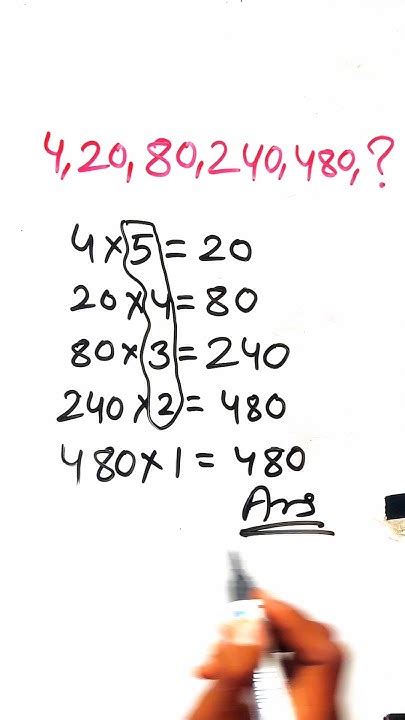 4,20,80,240,480,?
4×5=20
20×4=80
80×3=240
240×2=480
480×1=480
Ans